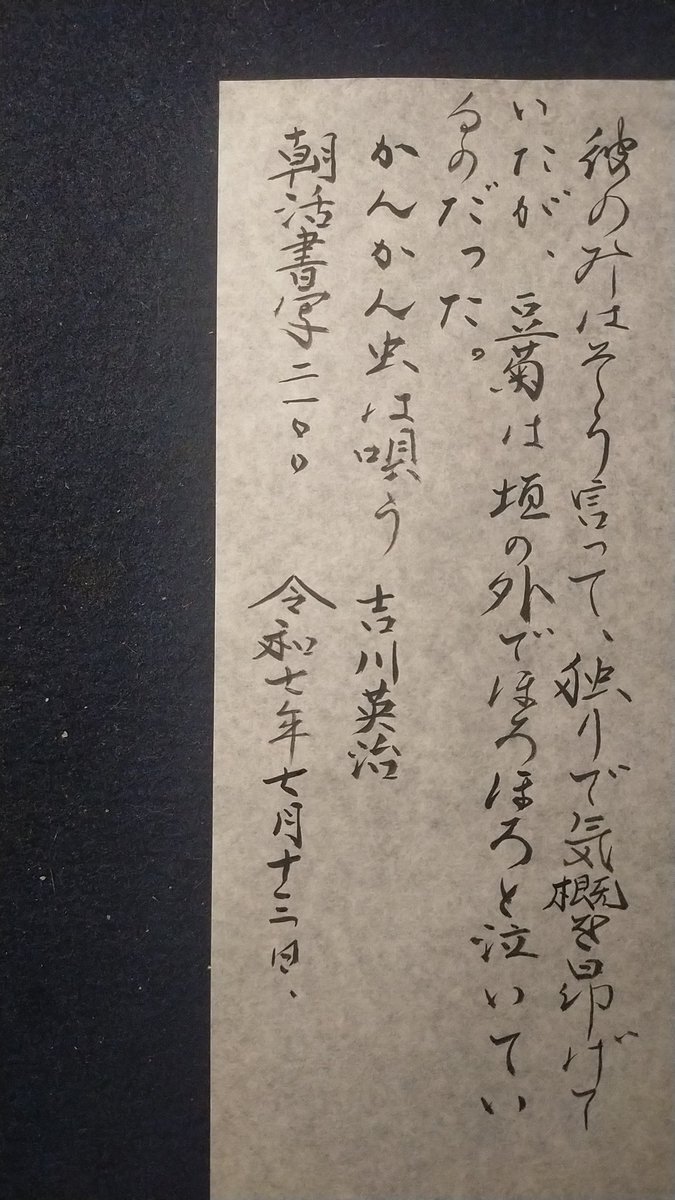 彼のみはそう言って、独りで気概を昂げて
いたが、豆菊は垣の外でほろほろと泣いてい
るのだった。
かんかん虫は唄う 吉川英治
朝活書写二一〇〇 令和七年七月十三日、